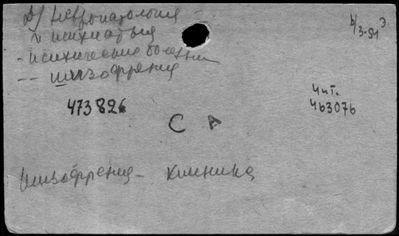 Д/ Невропатология
и психиатрия
- психические болезни
-- шизофрения
б/з-91 э.
473826
Чит.
463076
С А
Шизофрения - клиника